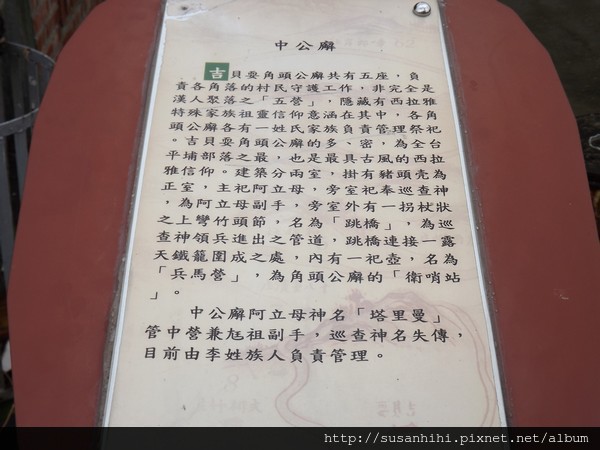 中公廨
吉貝耍角頭公廨共有五座，負
責各角落的村民守護工作，非完全是
漢人聚落之「五營」，隱藏有西拉雅
特殊家族祖靈信仰意涵在其中，各角
頭公廨各有一姓氏家族負責管理祭祀
。吉貝耍角頭公廨的多、密，為全台
平埔部落之最，也是最具古風的西拉
雅信仰。建築分兩室，掛有豬頭壳為
正室，主祀阿立母，旁室祀奉巡查神
，為阿立母副手，旁室外有一拐杖狀
之上彎竹頭節，名為「跳橋」，為巡
查神領兵進出之管道，跳橋連接一露
天鐵籠圍成之處，內有一祀壺，名為
「兵馬營」，為角頭公廨的「衛哨站
」。
中公廨阿立母神名「塔里曼」
管中營兼尪祖副手，巡查神名失傳，
目前由李姓族人負責管理。
http://susanhihi.pixnet.net/album